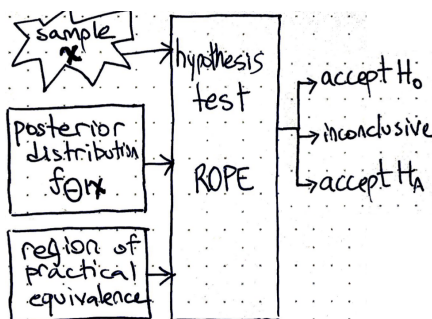 sample
x
posterior
distribution
fΘ|x
region of
practical
equivalence
hypothesis
test
ROPE
accept H₀
inconclusive
accept Hₐ